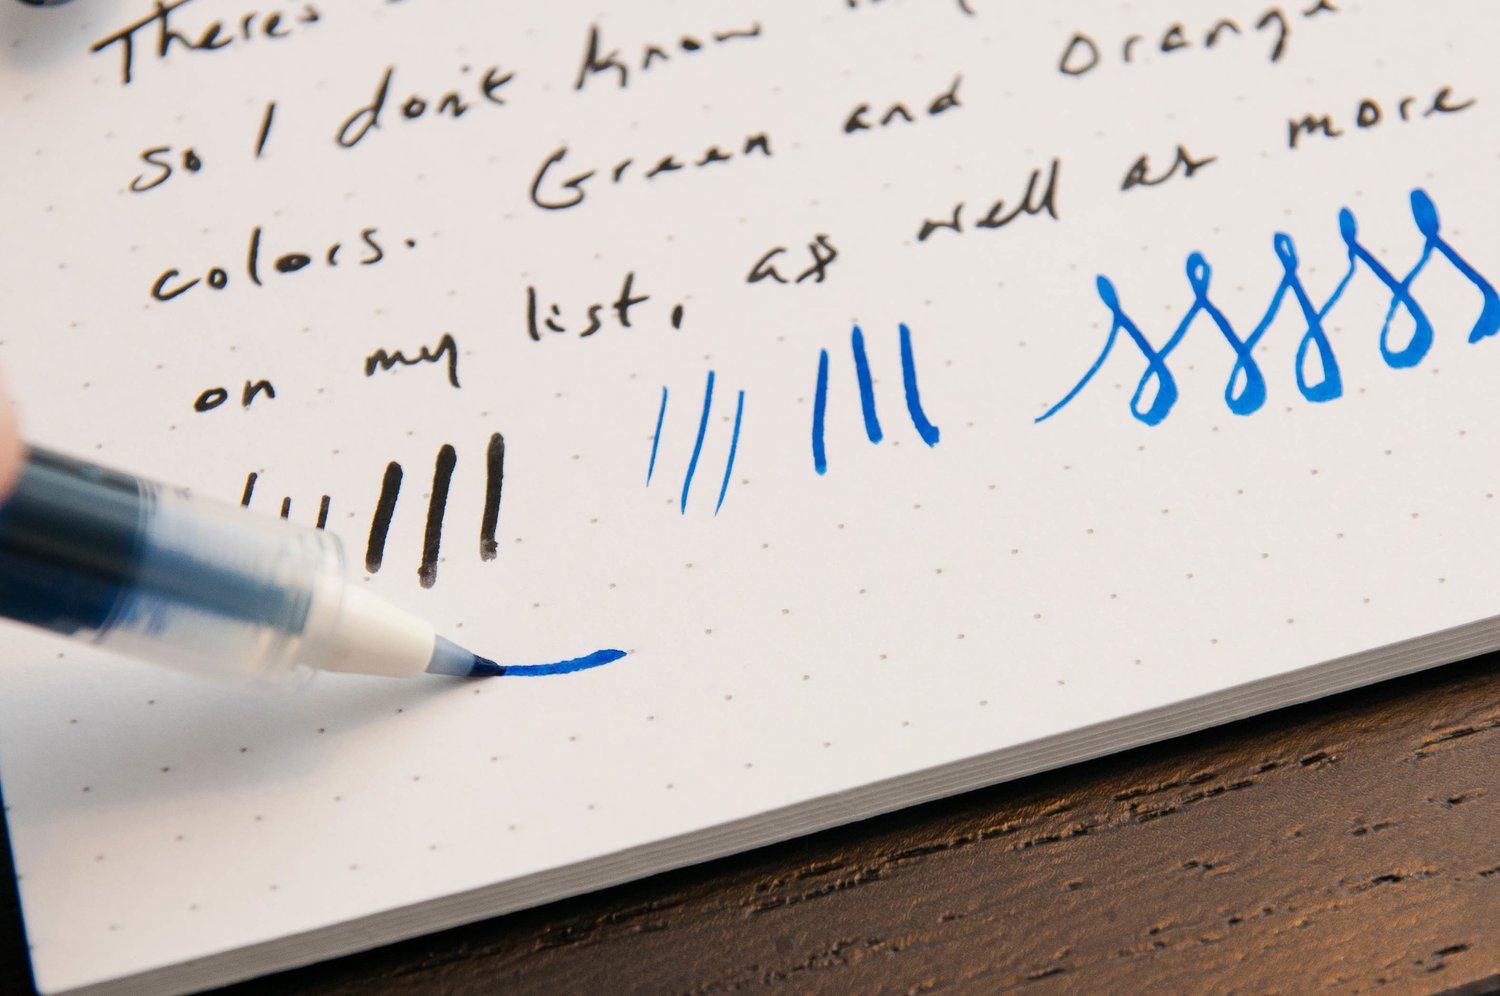 Theres
so I don't know
colors. Green and Orange
on my list, as well as more